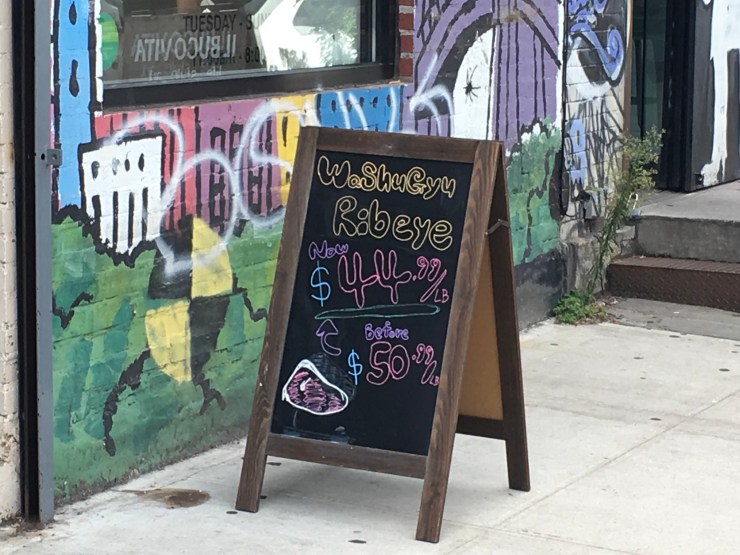 TUESDAY - SU
IL BUCO VITA
WaShuGyu
Ribeye
Now
$44.99/LB
Before
$50.99/LB